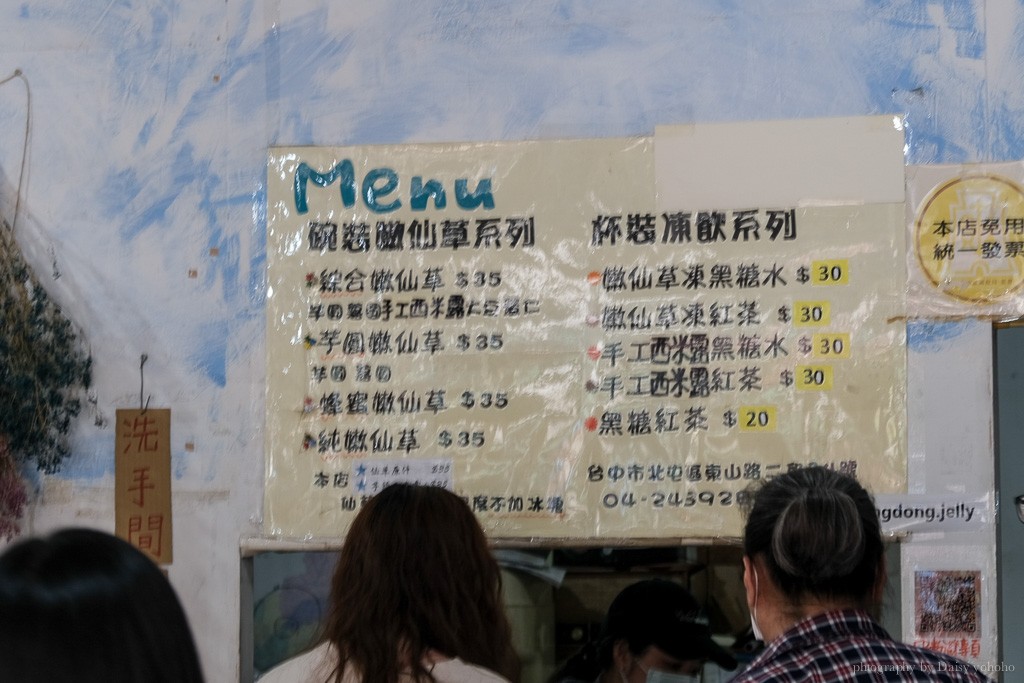 Menu
碗裝嫩仙草系列
綜合嫩仙草 $35
芋圓 薯圓 手工西米露 大
芋圓嫩仙草 $35
芋圓 薯圓
蜂蜜嫩仙草 $35
純嫩仙草 $35
本店
不加冰
杯裝凍飲系列
嫩仙草凍黑糖水 $30
嫩仙草凍紅茶 $30
手工西米露黑糖水 $30
手工西米露紅茶 $30
黑糖紅茶 $20
台中市北屯區東山路二
04-24392
本店免用
統一發票
洗手間
ngdong.jelly
photography by Daisy yohoho